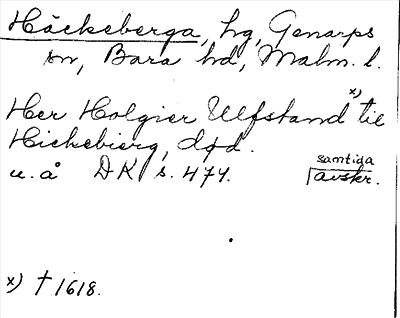 Häckeberga, hg, Genarps
sn, Bara hd, Malm. l.
Her Holgier Ulfstand x) til
Hickebierg, død.
u.å DK s. 474.
samtida
avskr.
x) † 1618.